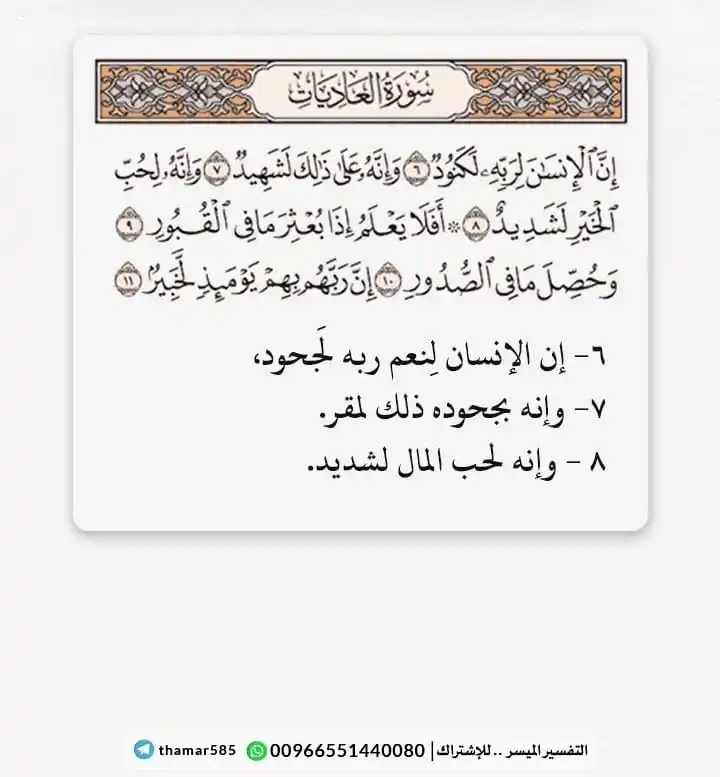 سُورَةُ العَادِيَاتِ
إِنَّ ٱلْإِنسَٰنَ لِرَبِّهِۦ لَكَنُودٌ ٦ وَإِنَّهُۥ عَلَىٰ ذَٰلِكَ لَشَهِيدٌ ٧ وَإِنَّهُۥ لِحُبِّ
ٱلْخَيْرِ لَشَدِيدٌ ٨ ۞ أَفَلَا يَعْلَمُ إِذَا بُعْثِرَ مَا فِى ٱلْقُبُورِ ٩
وَحُصِّلَ مَا فِى ٱلصُّدُورِ ١٠ إِنَّ رَبَّهُم بِهِمْ يَوْمَئِذٍ لَّخَبِيرٌۢ ١١
٦- إن الإنسان لِنعم ربه لَجحود،
٧- وإنه بجحوده ذلك لمقر.
٨ - وإنه لحب المال لشديد.
التفسير الميسر .. للإشتراك | 00966551440080 thamar585